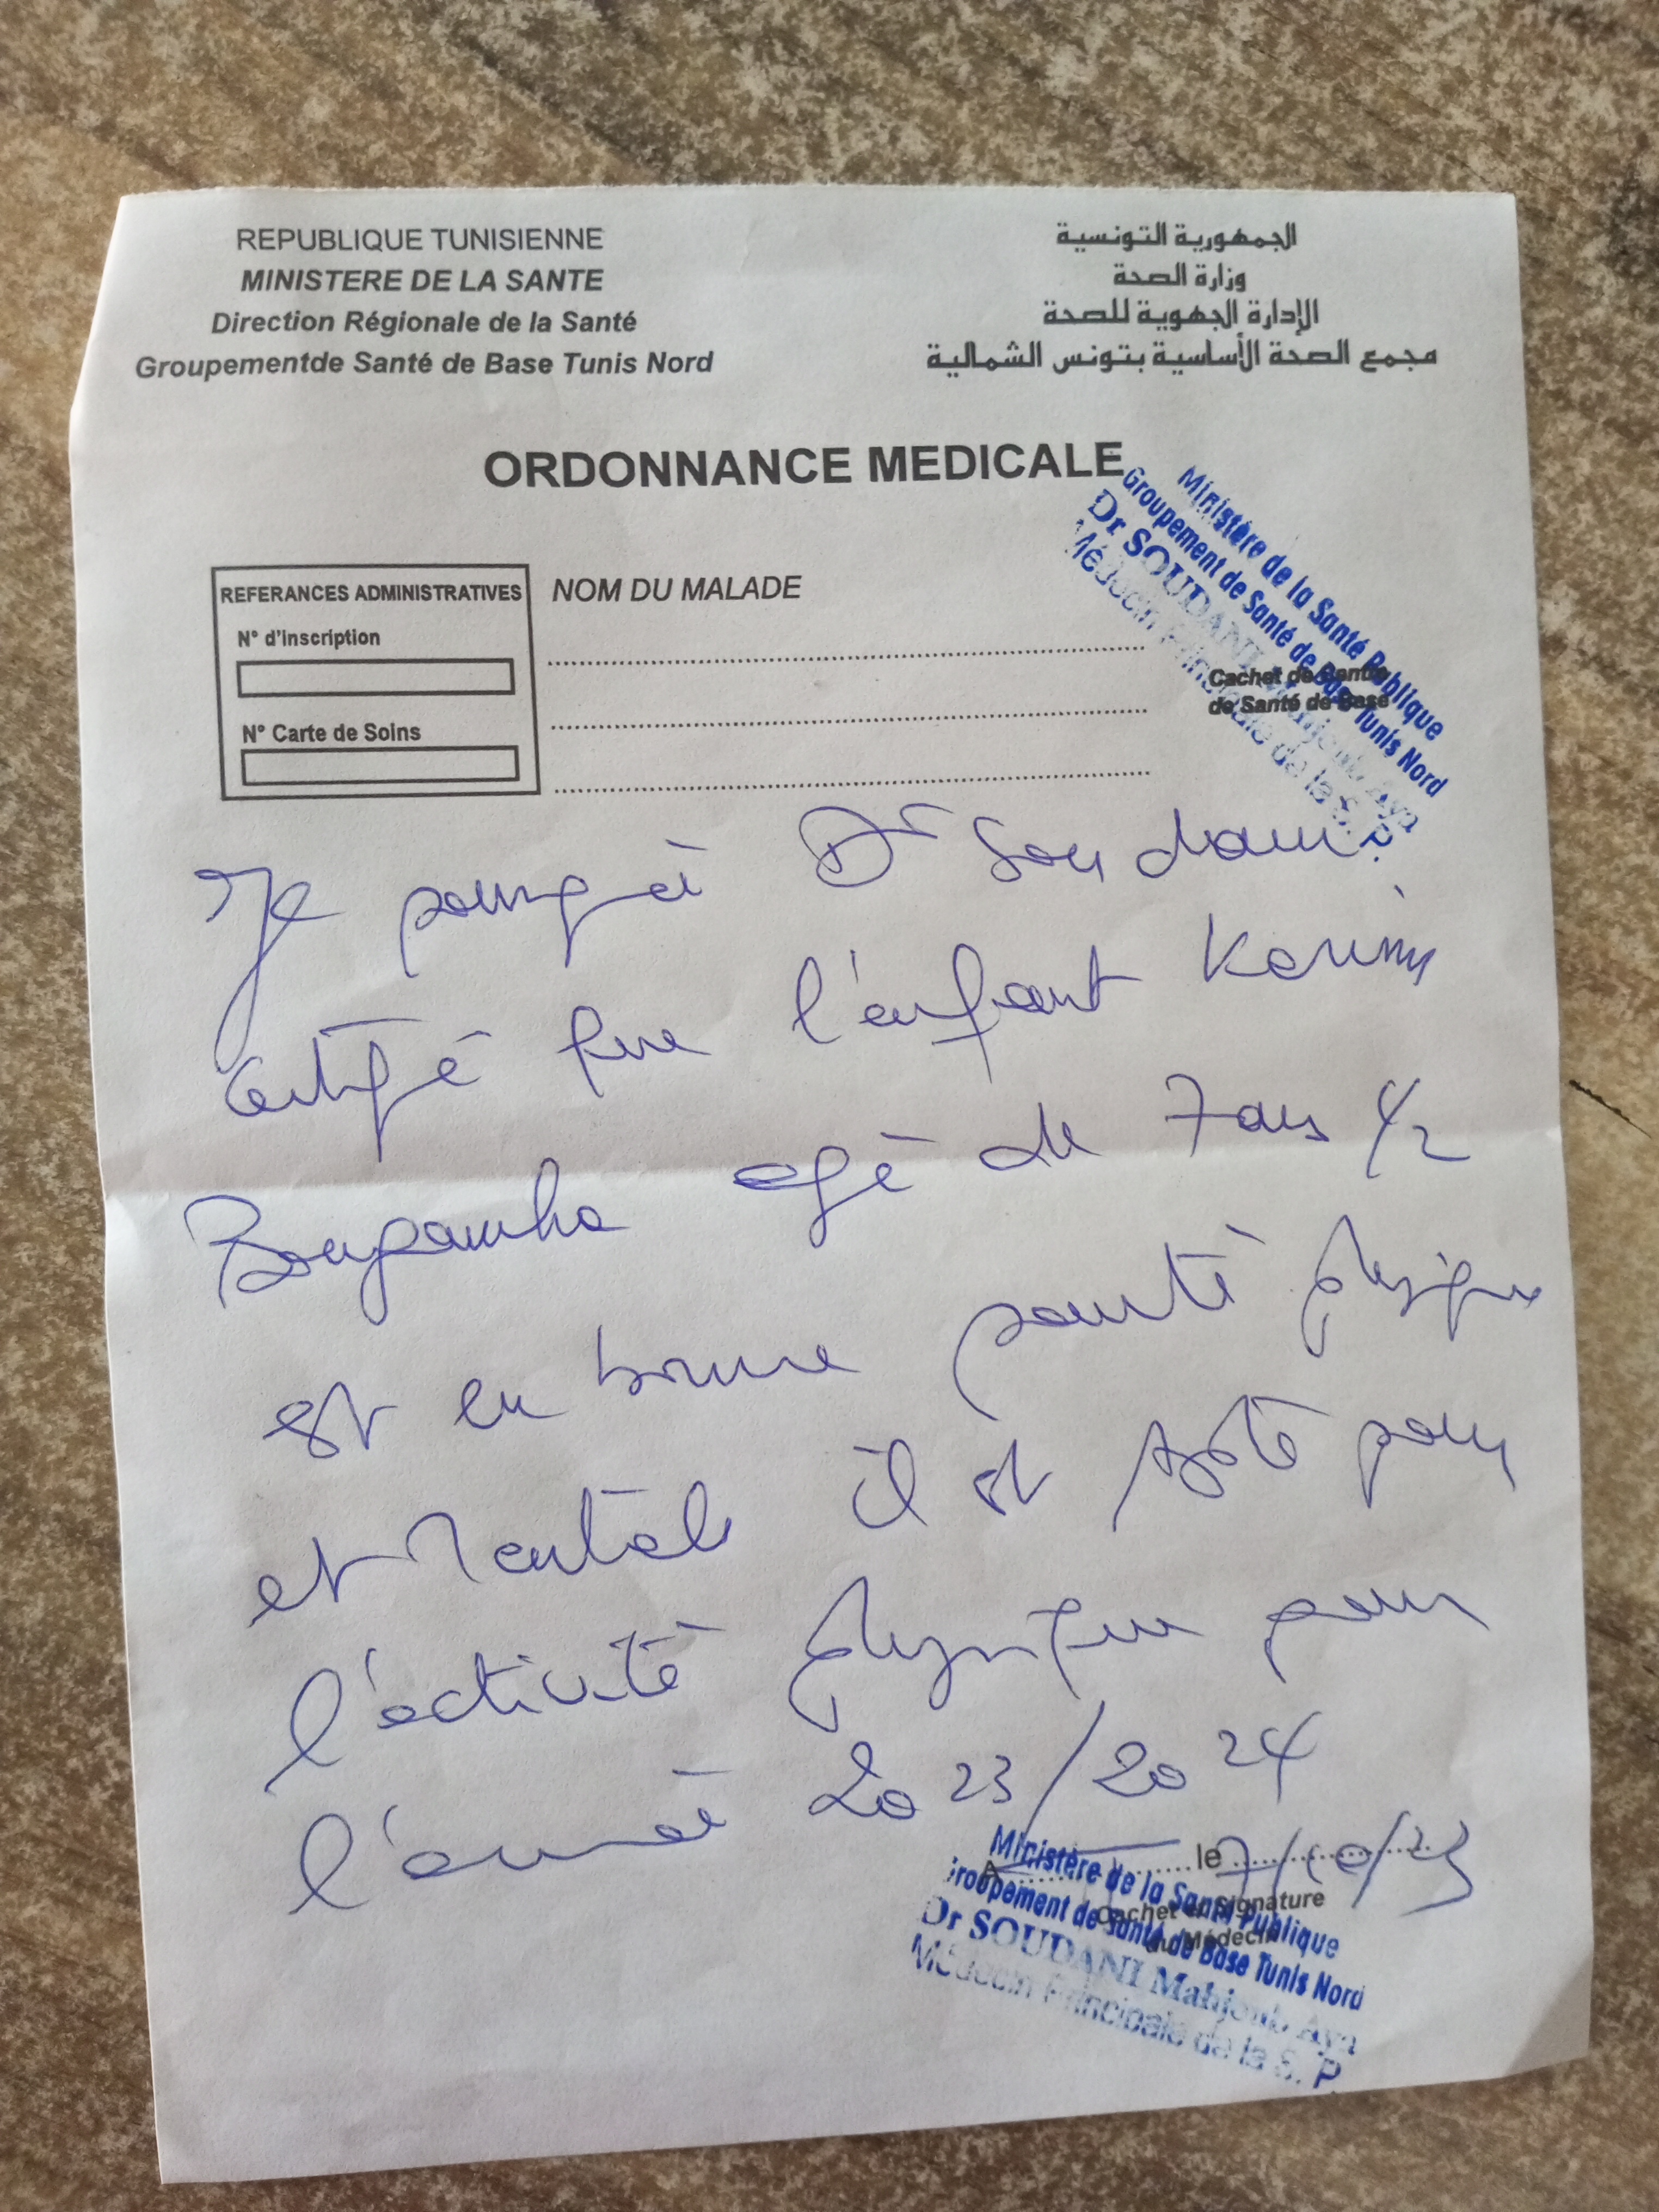 REPUBLIQUE TUNISIENNE
MINISTERE DE LA SANTE
Direction Régionale de la Santé
Groupementde Santé de Base Tunis Nord
الجمهورية التونسية
وزارة الصحة
الإدارة الجهوية للصحة
مجمع الصحة الأساسية بتونس الشمالية
ORDONNANCE MEDICALE
REFERANCES ADMINISTRATIVES
N° d'inscription
N° Carte de Soins
NOM DU MALADE
Cachet de Centre
de Santé de Base
Ministère de la Santé Publique
Groupement de Santé de Base Tunis Nord
Dr SOUDANI Mahjoub Aya
Médecin Principale de la S. P.
Je Dr Soudani
que l'enfant Karim
agé de 7 ans 1/2
est en bonne santé physique
et Mentale il est pour
l'activité physique pour
l'année 2023/2024
le 7/10/23
Cachet et Signature
du Médecin
Ministère de la Santé Publique
Groupement de Santé de Base Tunis Nord
Dr SOUDANI Mahjoub Aya
Médecin Principale de la S. P.